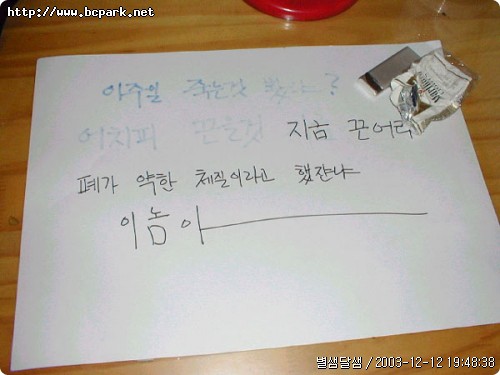 http://www.bcpark.net
아주일 죽는것 봤냐?
어치피 끈을것 지금 끈어라
폐가 약한 체질이라고 했쟌냐
이놈아
별샘달샘 / 2003-12-12 19:48:38